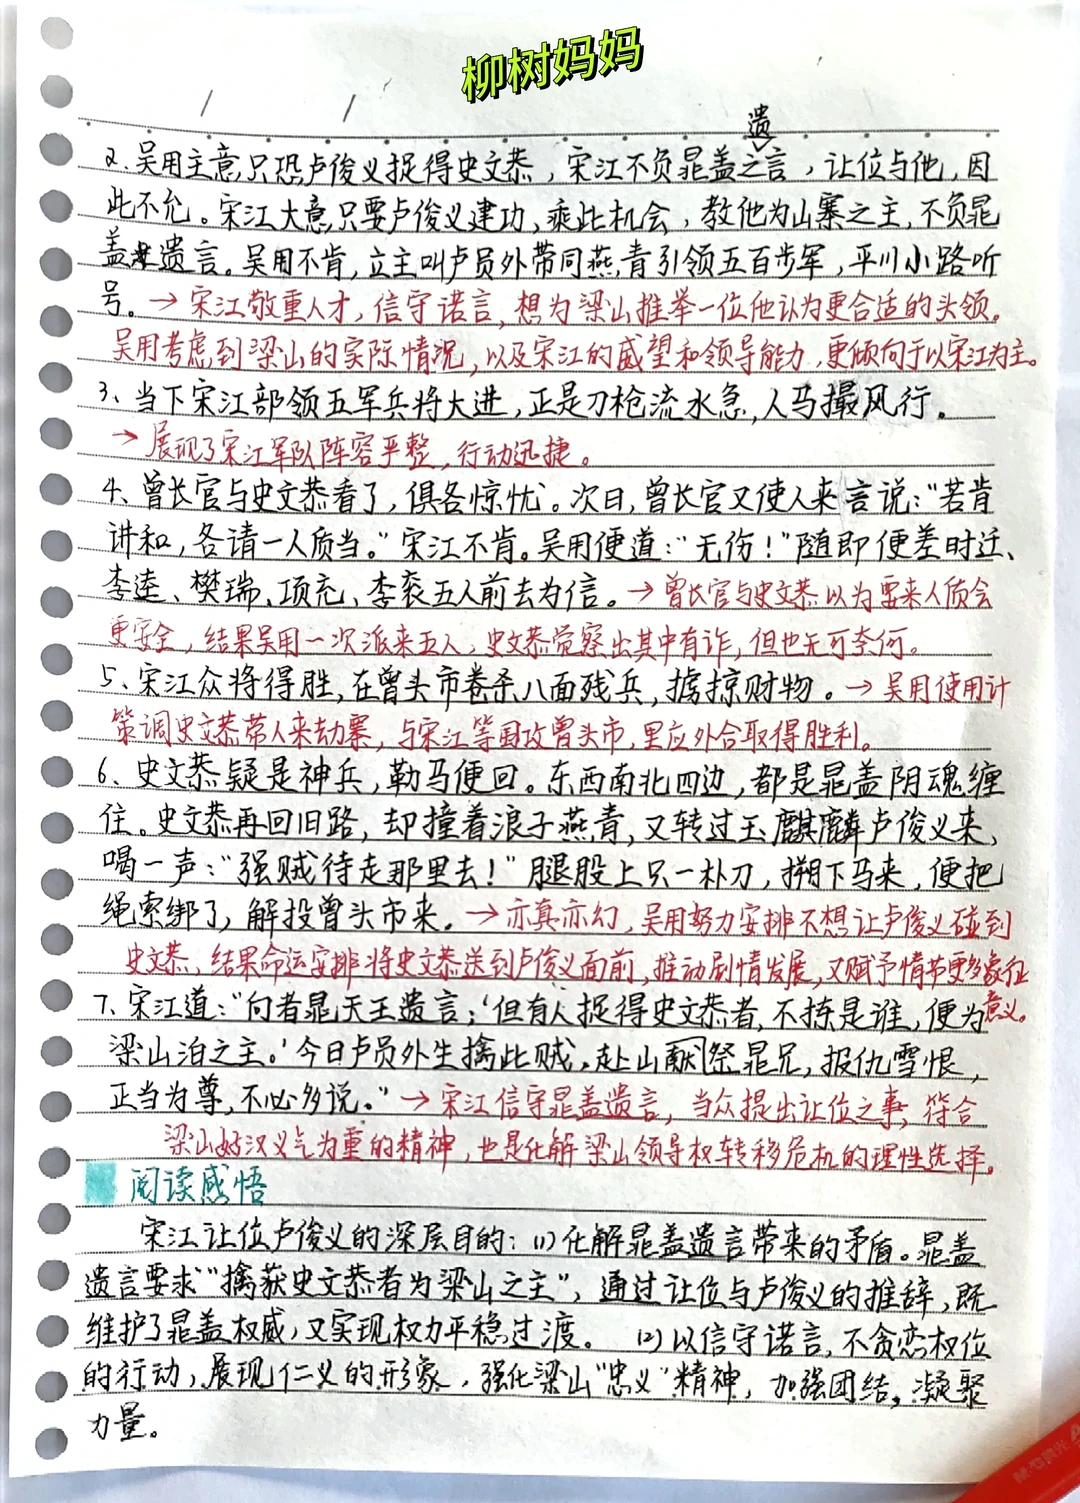 柳树妈妈
遗
2、吴用主意只恐卢俊义捉得史文恭，宋江不负晁盖之言，让位与他，因
此不允。宋江大意只要卢俊义建功，乘此机会，教他为山寨之主，不负晁
盖遗言。吴用不肯，立主叫卢员外带同燕青引领五百步军，平川小路听
号。→宋江敬重人才，信守诺言，想为梁山推举一位他认为更合适的头领。
吴用考虑到梁山的实际情况，以及宋江的威望和领导能力，更倾向于以宋江为主。
3、当下宋江部领五军兵将大进，正是刀枪流水急，人马撮风行。
→展现了宋江军队阵容严整，行动迅捷。
4、曾长官与史文恭看了，俱各惊忧。次日，曾长官又使人来言说：“若肯
讲和，各请一人质当。”宋江不肯。吴用便道：“无伤！”随即便差时迁、
李逵、樊瑞、项充、李衮五人前去为信。→曾长官与史文恭以为要来人质会
更安全，结果吴用一次派来五人，史文恭觉察出其中有诈，但也无可奈何。
5、宋江众将得胜，在曾头市卷杀八面残兵，掳掠财物。→吴用使用计
策调史文恭带人来劫寨，与宋江等围攻曾头市，里应外合取得胜利。
6、史文恭疑是神兵，勒马便回。东西南北四边，都是晁盖阴魂缠
住。史文恭再回旧路，却撞着浪子燕青，又转过玉麒麟卢俊义来，
喝一声：“强贼待走那里去！”腿股上只一朴刀，搠下马来，便把
绳索绑了，解投曾头市来。→亦真亦幻，吴用努力安排不想让卢俊义碰到
史文恭，结果命运安排将史文恭送到卢俊义面前，推动剧情发展，又赋予情节更多象征
意义。
7、宋江道：“向者晁天王遗言：‘但有人捉得史文恭者，不拣是谁，便为
梁山泊之主。’今日卢员外生擒此贼，赴山祭晁兄，报仇雪恨，
正当为尊，不必多说。”→宋江信守晁盖遗言，当众提出让位之事，符合
梁山好汉义气为重的精神，也是化解梁山领导权转移危机的理性选择。
阅读感悟
宋江让位卢俊义的深层目的：(1)化解晁盖遗言带来的矛盾。晁盖
遗言要求“擒获史文恭者为梁山之主”，通过让位与卢俊义的推辞，既
维护了晁盖权威，又实现权力平稳过渡。 (2)以信守诺言，不贪恋权位
的行动，展现仁义的形象，强化梁山“忠义”精神，加强团结，凝聚
力量。